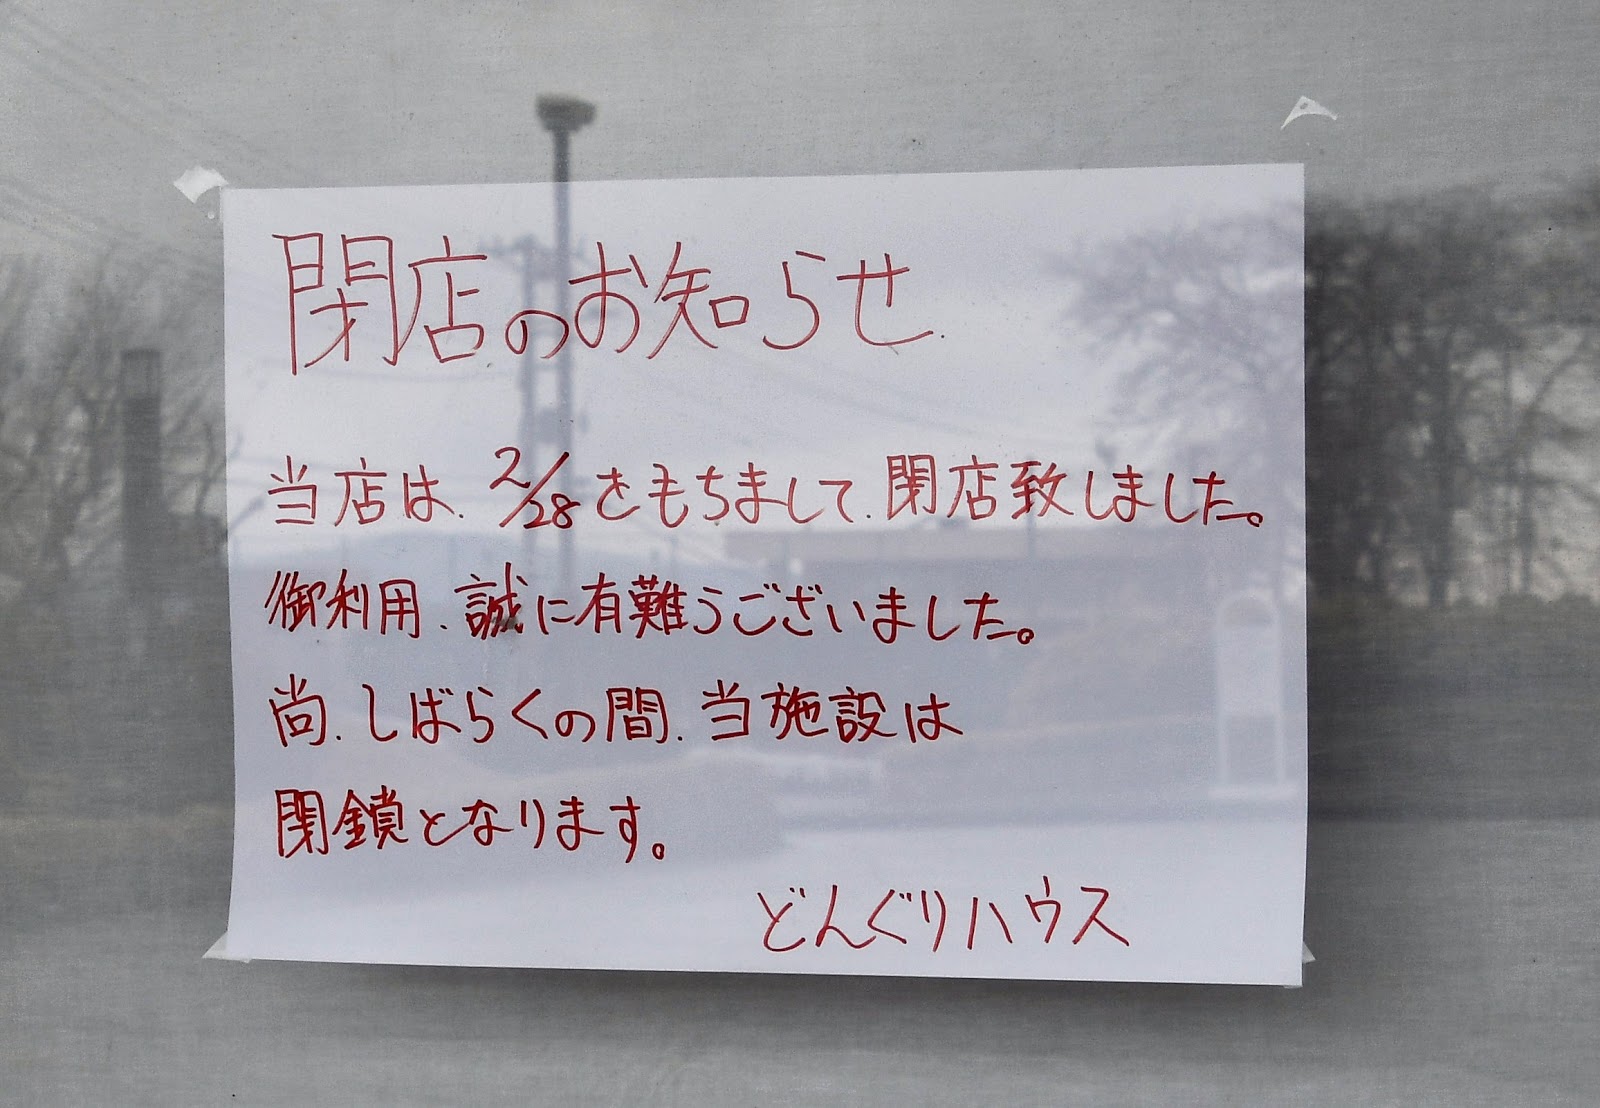 閉店のお知らせ.
当店は、2/28をもちまして、閉店致しました。
御利用、誠に有難うございました。
尚、しばらくの間、当施設は
閉鎖となります。
どんぐりハウス